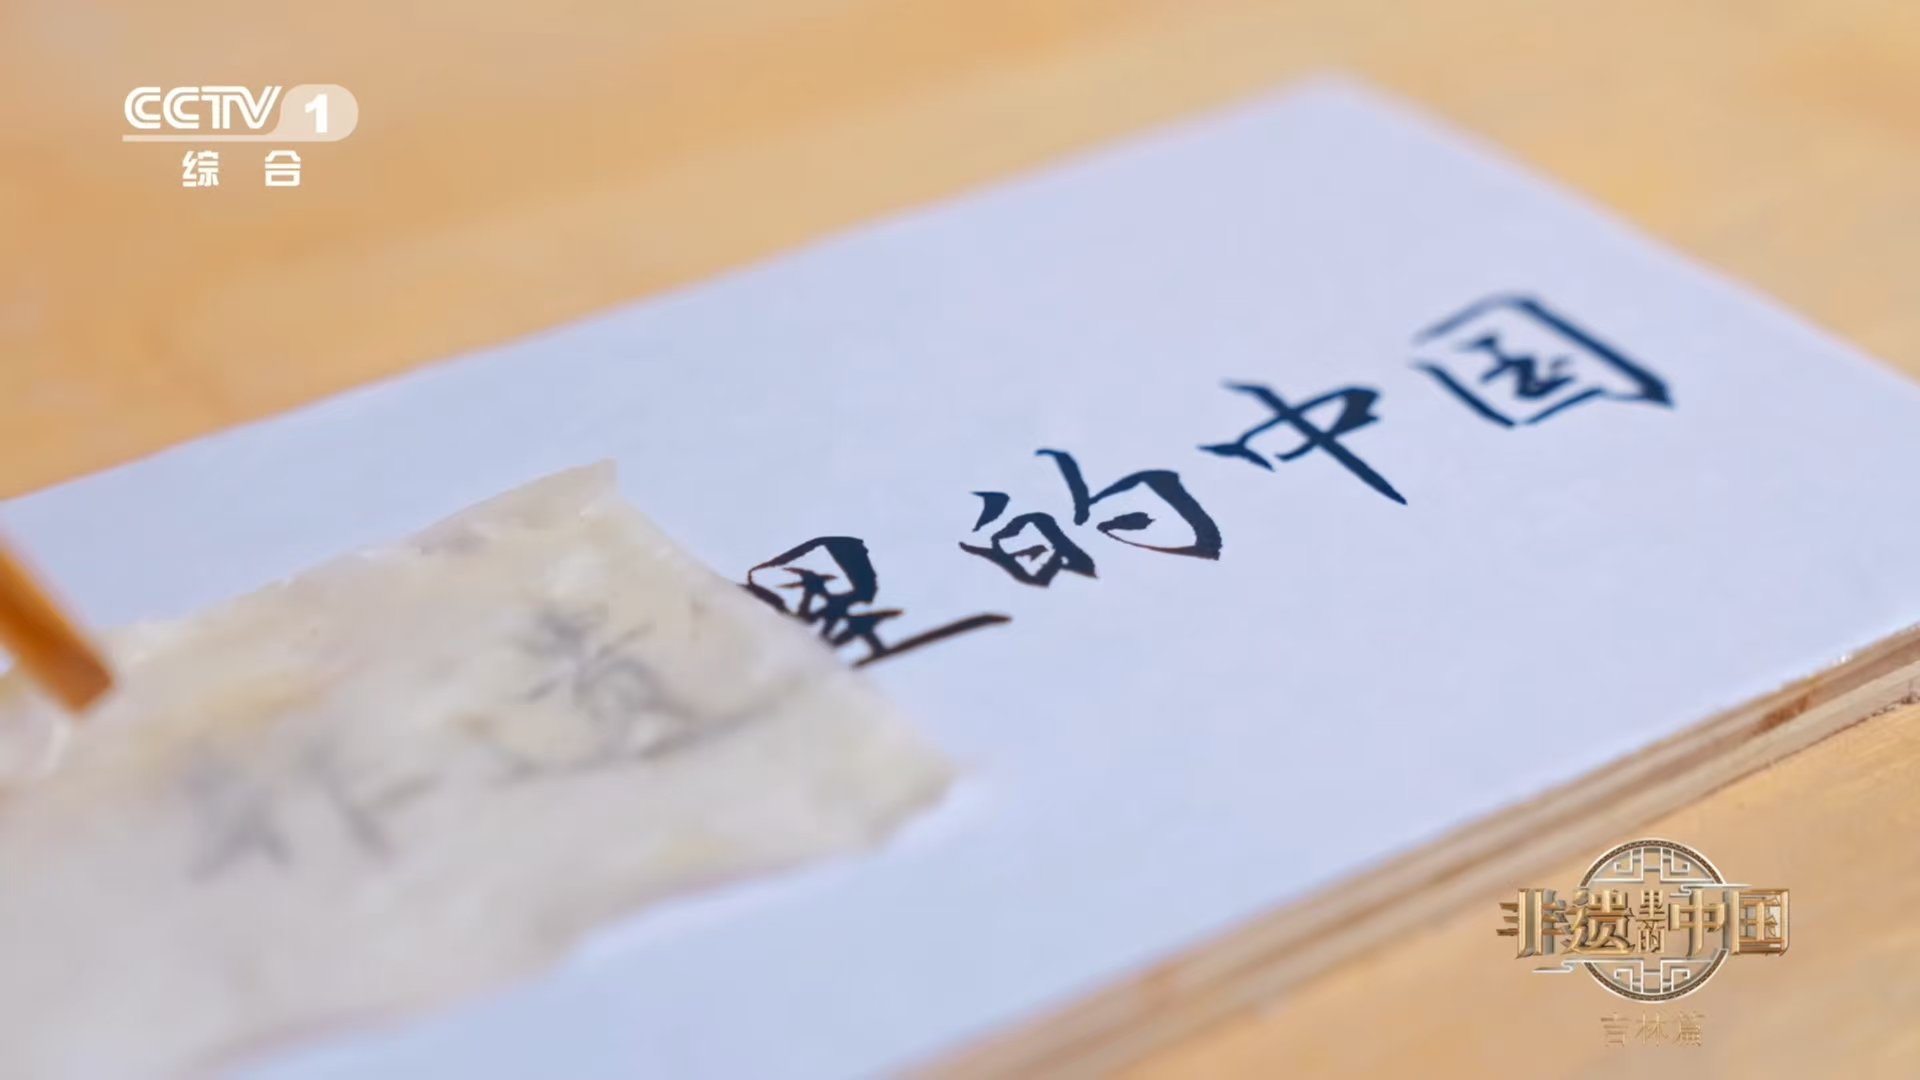 CCTV 1
综合
非遗里的中国
非遗里的中国
吉林篇